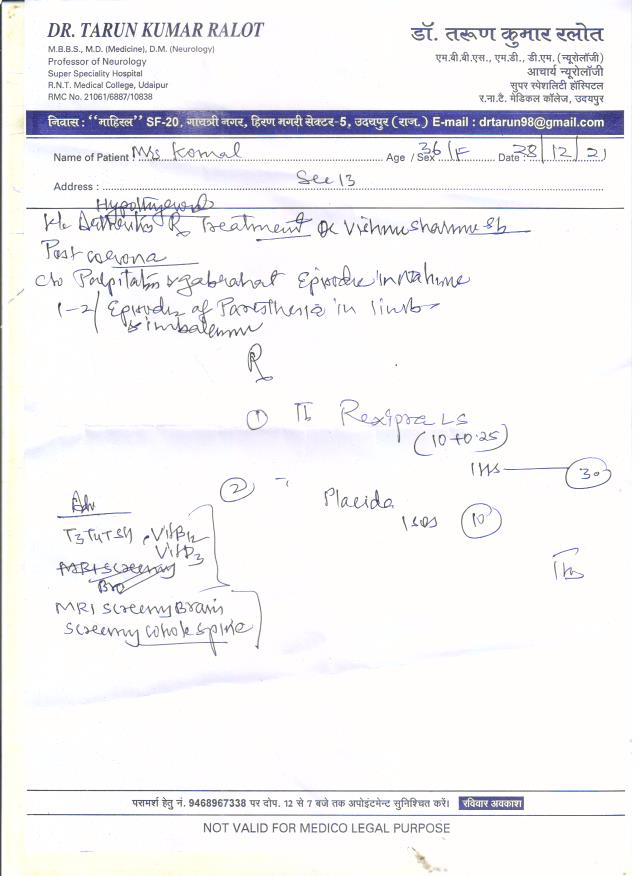 DR. TARUN KUMAR RALOT
M.B.B.S., M.D. (Medicine), D.M. (Neurology)
Professor of Neurology
Super Speciality Hospital
R.N.T. Medical College, Udaipur
RMC No. 21061/6887/10838
डॉ. तरूण कुमार रलोत
एम.बी.बी.एस., एम.डी., डी.एम. (न्यूरोलॉजी)
आचार्य न्यूरोलॉजी
सुपर स्पेशलिटी हॉस्पिटल
र.ना.टै. मेडिकल कॉलेज, उदयपुर
निवास : "माहिरल" SF-20, गायत्री नगर, हिरण मगरी सेक्टर-5, उदयपुर (राज.) E-mail : drtarun98@gmail.com
Name of Patient Mrs Komal Age / Sex 36/F Date 28/12/21
Address : Sec 13
Treatment Dr Vishnu Sharma
Post corona
c/o Palpitation & gabrahat Episodic
1-2/ Episodes of Paresthesia in limbs
&
R
① Tb Rexipra LS
(10+0.25)
1HS 30
② Placida
1 SOS 10
Adv
T3T4TSH, VitB12
VitD3
MRI Screening
MRI Screening Brain
Screening whole spine
परामर्श हेतु नं. 9468967338 पर दोप. 12 से 7 बजे तक अपोइंटमेन्ट सुनिश्चित करें। रविवार अवकाश
NOT VALID FOR MEDICO LEGAL PURPOSE